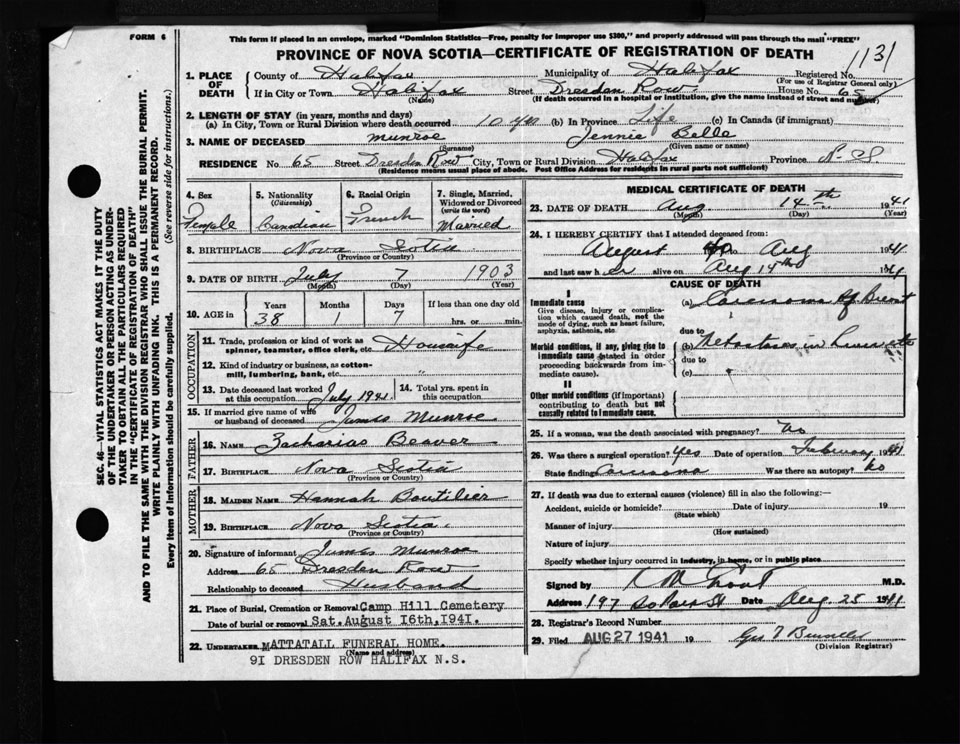 FORM 6
This form if placed in an envelope, marked "Dominion Statistics—Free, penalty for improper use $300," and properly addressed will pass through the mail "FREE"
PROVINCE OF NOVA SCOTIA—CERTIFICATE OF REGISTRATION OF DEATH
1131
1. PLACE OF DEATH
County of Halifax Municipality of Halifax Registered No.
(For use of Registrar General only)
If in City or Town Halifax Street Dresden Row House No. 65
(Name) (If death occurred in a hospital or institution, give the name instead of street and number)
2. LENGTH OF STAY (in years, months and days)
(a) In City, Town or Rural Division where death occurred 10 yrs (b) In Province Life (c) In Canada (if immigrant)
3. NAME OF DECEASED Munroe Jennie Belle
(Surname) (Given name or names)
RESIDENCE No. 65 Street Dresden Row City, Town or Rural Division Halifax Province N-S
(Residence means usual place of abode. Post Office Address for residents in rural parts not sufficient)
4. Sex Female
5. Nationality (Citizenship) Candian
6. Racial Origin French
7. Single, Married, Widowed or Divorced (write the word) Married
8. BIRTHPLACE Nova Scotia
(Province or Country)
9. DATE OF BIRTH July 7 1903
(Month) (Day) (Year)
10. AGE in Years Months Days If less than one day old
38 1 7 hrs. or min.
OCCUPATION
11. Trade, profession or kind of work as spinner, teamster, office clerk, etc. Housewife
12. Kind of industry or business, as cotton-mill, lumbering, bank, etc. "
13. Date deceased last worked at this occupation July 1941
14. Total yrs. spent in this occupation
15. If married give name of wife or husband of deceased James Munroe
FATHER
16. NAME Zacharias Beaver
17. BIRTHPLACE Nova Scotia
(Province or Country)
MOTHER
18. MAIDEN NAME Hannah Boutilier
19. BIRTHPLACE Nova Scotia
(Province or Country)
20. Signature of informant James Munroe
Address 65 Dresden Row
Relationship to deceased Husband
21. Place of Burial, Cremation or Removal Camp Hill Cemetery
Date of burial or removal Sat. August 16th, 1941.
22. UNDERTAKER MATTATALL FUNERAL HOME.
(Name and address)
91 DRESDEN ROW HALIFAX N.S.
MEDICAL CERTIFICATE OF DEATH
23. DATE OF DEATH Aug 14th 1941
(Month) (Day) (Year)
24. I HEREBY CERTIFY that I attended deceased from:
August to Aug 1941
and last saw h er alive on Aug 14th 1941
CAUSE OF DEATH
I
Immediate cause
Give disease, injury or complication which caused death, not the mode of dying, such as heart failure, asphyxia, asthenia, etc.
(a) Carcinoma of Breast
due to
Morbid conditions, if any, giving rise to immediate cause (stated in order proceeding backwards from immediate cause).
(b) Metastases in
due to
(c)
II
Other morbid conditions (if important) contributing to death but not causally related to immediate cause.
25. If a woman, was the death associated with pregnancy? No
26. Was there a surgical operation? yes Date of operation February 1941
State findings Carcinoma Was there an autopsy? No
27. If death was due to external causes (violence) fill in also the following:—
Accident, suicide or homicide? Date of injury 19
(State which)
Manner of injury
(How sustained)
Nature of injury
Specify whether injury occurred in industry, in home, or in public place
Signed by M.D.
Address 197 So Park St Date Aug. 25 1941
28. Registrar's Record Number
29. Filed AUG 27 1941 19
(Division Registrar)
SEC. 46—VITAL STATISTICS ACT MAKES IT THE DUTY
OF THE UNDERTAKER OR PERSON ACTING AS UNDER-
TAKER TO OBTAIN ALL THE PARTICULARS REQUIRED
IN THE "CERTIFICATE OF REGISTRATION OF DEATH"
AND TO FILE THE SAME WITH THE DIVISION REGISTRAR WHO SHALL ISSUE THE BURIAL PERMIT.
WRITE PLAINLY WITH UNFADING INK. THIS IS A PERMANENT RECORD.
Every item of Information should be carefully supplied. (See reverse side for instructions.)